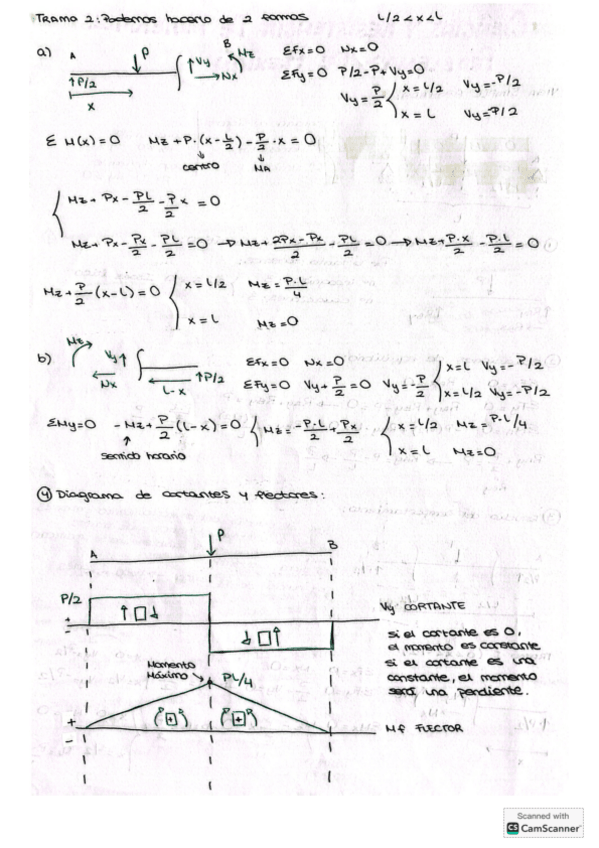 TRAMO 2: Podemos hacerlo de 2 formas L/2 < x < L
a) A P B
P/2 Vy Mz Nx x
ΣFx=0 Nx=0
ΣFy=0 P/2-P+Vy=0
Vy=P/2 x=L/2 Vy=-P/2
x=L Vy=-P/2
Σ M(x)=0 Mz+P·(x-L/2)-P/2·x=0
centro MA
Mz+Px-PL/2-P/2x=0
Mz+Px-Px/2-PL/2=0 → Mz+2Px-Px/2-PL/2=0 → Mz+P·x/2-P·L/2=0
Mz+P/2(x-L)=0 x=L/2 Mz=P·L/4
x=L Mz=0
b) Mz Vy Nx L-x P/2
ΣFx=0 Nx=0
ΣFy=0 Vy+P/2=0 Vy=-P/2 x=L Vy=-P/2
x=L/2 Vy=-P/2
ΣMy=0 -Mz+P/2(L-x)=0 Mz=-P·L/2+Px/2 x=L/2 Mz=P·L/4
x=L Mz=0
sentido horario
④ Diagrama de cortantes y flectores:
P
A B
P/2
+
-
Vy CORTANTE
si el cortante es 0,
el momento es constante
si el cortante es una
constante, el momento
será una pendiente.
Momento
Máximo
PL/4
+
-
+ +
Mf FLECTOR
Scanned with
CS CamScanner